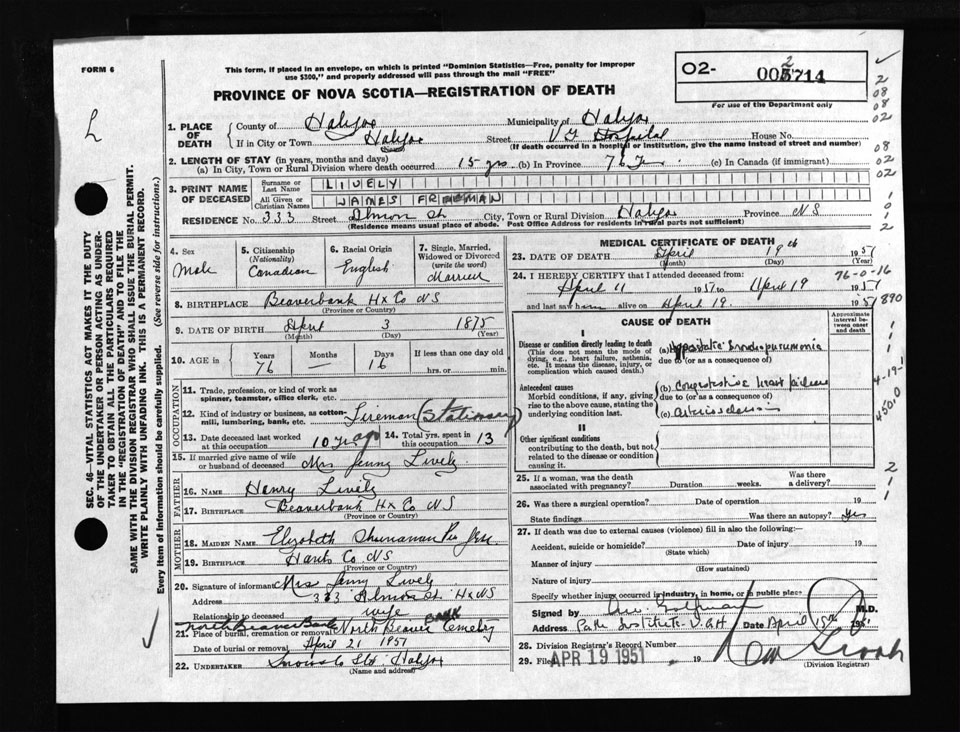 FORM 6
This form, if placed in an envelope, on which is printed "Dominion Statistics—Free, penalty for improper
use $300," and properly addressed will pass through the mail "FREE"
PROVINCE OF NOVA SCOTIA—REGISTRATION OF DEATH
02- 005714
2
For use of the Department only
L
SEC. 46—VITAL STATISTICS ACT MAKES IT THE DUTY
OF THE UNDERTAKER OR PERSON ACTING AS UNDER-
TAKER TO OBTAIN ALL THE PARTICULARS REQUIRED
IN THE "REGISTRATION OF DEATH" AND TO FILE THE
SAME WITH THE DIVISION REGISTRAR WHO SHALL ISSUE THE BURIAL PERMIT.
WRITE PLAINLY WITH UNFADING INK. THIS IS A PERMANENT RECORD.
Every item of information should be carefully supplied. (See reverse side for instructions.)
1. PLACE OF DEATH County of Halifax Municipality of Halifax
If in City or Town Halifax Street V G Hospital House No.
(If death occurred in a hospital or institution, give the name instead of street and number)
2. LENGTH OF STAY (in years, months and days)
(a) In City, Town or Rural Division where death occurred 15 yrs (b) In Province 76 (c) In Canada (if immigrant)
3. PRINT NAME OF DECEASED Surname or Last Name LIVELY
All Given or Christian Names JAMES FREEMAN
RESIDENCE No. 333 Street Almon St. City, Town or Rural Division Halifax Province NS
(Residence means usual place of abode. Post Office Address for rural parts not sufficient)
4. Sex Male
5. Citizenship (Nationality) Canadian
6. Racial Origin English
7. Single, Married, Widowed or Divorced (write the word) Married
8. BIRTHPLACE Beaverbank Hx Co NS
(Province or Country)
9. DATE OF BIRTH April 3 1875
(Month) (Day) (Year)
10. AGE in Years Months Days If less than one day old
76 — 16 hrs. or min.
OCCUPATION
11. Trade, profession, or kind of work as
spinner, teamster, office clerk, etc.
12. Kind of industry or business, as cotton-
mill, lumbering, bank, etc. Fireman (Stationary)
13. Date deceased last worked at this occupation 10 yr ago 14. Total yrs. spent in this occupation 13
15. If married give name of wife
or husband of deceased Mrs Jenny Lively
FATHER
16. NAME Henry Lively
17. BIRTHPLACE Beaverbank Hx Co NS
(Province or Country)
MOTHER
18. MAIDEN NAME Elizabeth
19. BIRTHPLACE Hants Co NS
(Province or Country)
20. Signature of informant Mrs Jenny Lively
Address 333 Almon St. Hx NS
Relationship to deceased wife
North Beaver Bank
21. Place of burial, cremation or removal North Beaver Bank Cemetery
Date of burial or removal April 21 1951
22. UNDERTAKER Snows Co Ltd. Halifax
(Name and address)
MEDICAL CERTIFICATE OF DEATH
23. DATE OF DEATH April 19th 1951
(Month) (Day) (Year)
76-0-16
24. I HEREBY CERTIFY that I attended deceased from:
April 11 1951 to April 19 1951
and last saw h im alive on April 19. 1951
CAUSE OF DEATH
Approximate interval between onset and death
I
Disease or condition directly leading to death
(This does not mean the mode of dying, e.g., heart failure, asthenia, etc. It means the disease, injury, or complication which caused death.)
(a) Hypostatic Broncho-pneumonia
due to (or as a consequence of)
Antecedent causes
Morbid conditions, if any, giving rise to the above cause, stating the underlying condition last.
(b) Congestive heart failure
due to (or as a consequence of)
(c) Arteriosclerosis
II
Other significant conditions
contributing to the death, but not related to the disease or condition causing it.
25. If a woman, was the death associated with pregnancy? Duration weeks. Was there a delivery?
26. Was there a surgical operation? Date of operation 19
State findings Was there an autopsy? Yes
27. If death was due to external causes (violence) fill in also the following:—
Accident, suicide or homicide? Date of injury 19
(State which)
Manner of injury
(How sustained)
Nature of injury
Specify whether injury occurred in industry, in home, or in public place
Signed by M.D.
Address Path Institute V.G.H Date April 1951
28. Division Registrar's Record Number
29. Filed APR 19 1951 19
(Division Registrar)
2
08
08
02
08
02
02
1
0
1
2
890
1
1
1
4-19-1
450.0
2
1
1